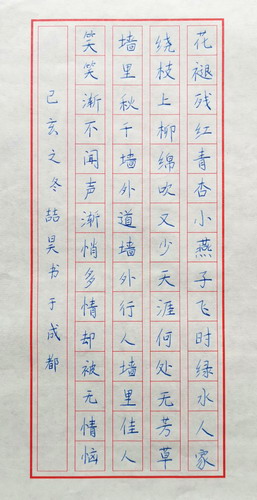 花褪残红青杏小燕子飞时绿水人家
绕枝上柳绵吹又少天涯何处无芳草
墙里秋千墙外道墙外行人墙里佳人
笑笑渐不闻声渐悄多情却被无情恼
己亥之冬喆昊书于成都